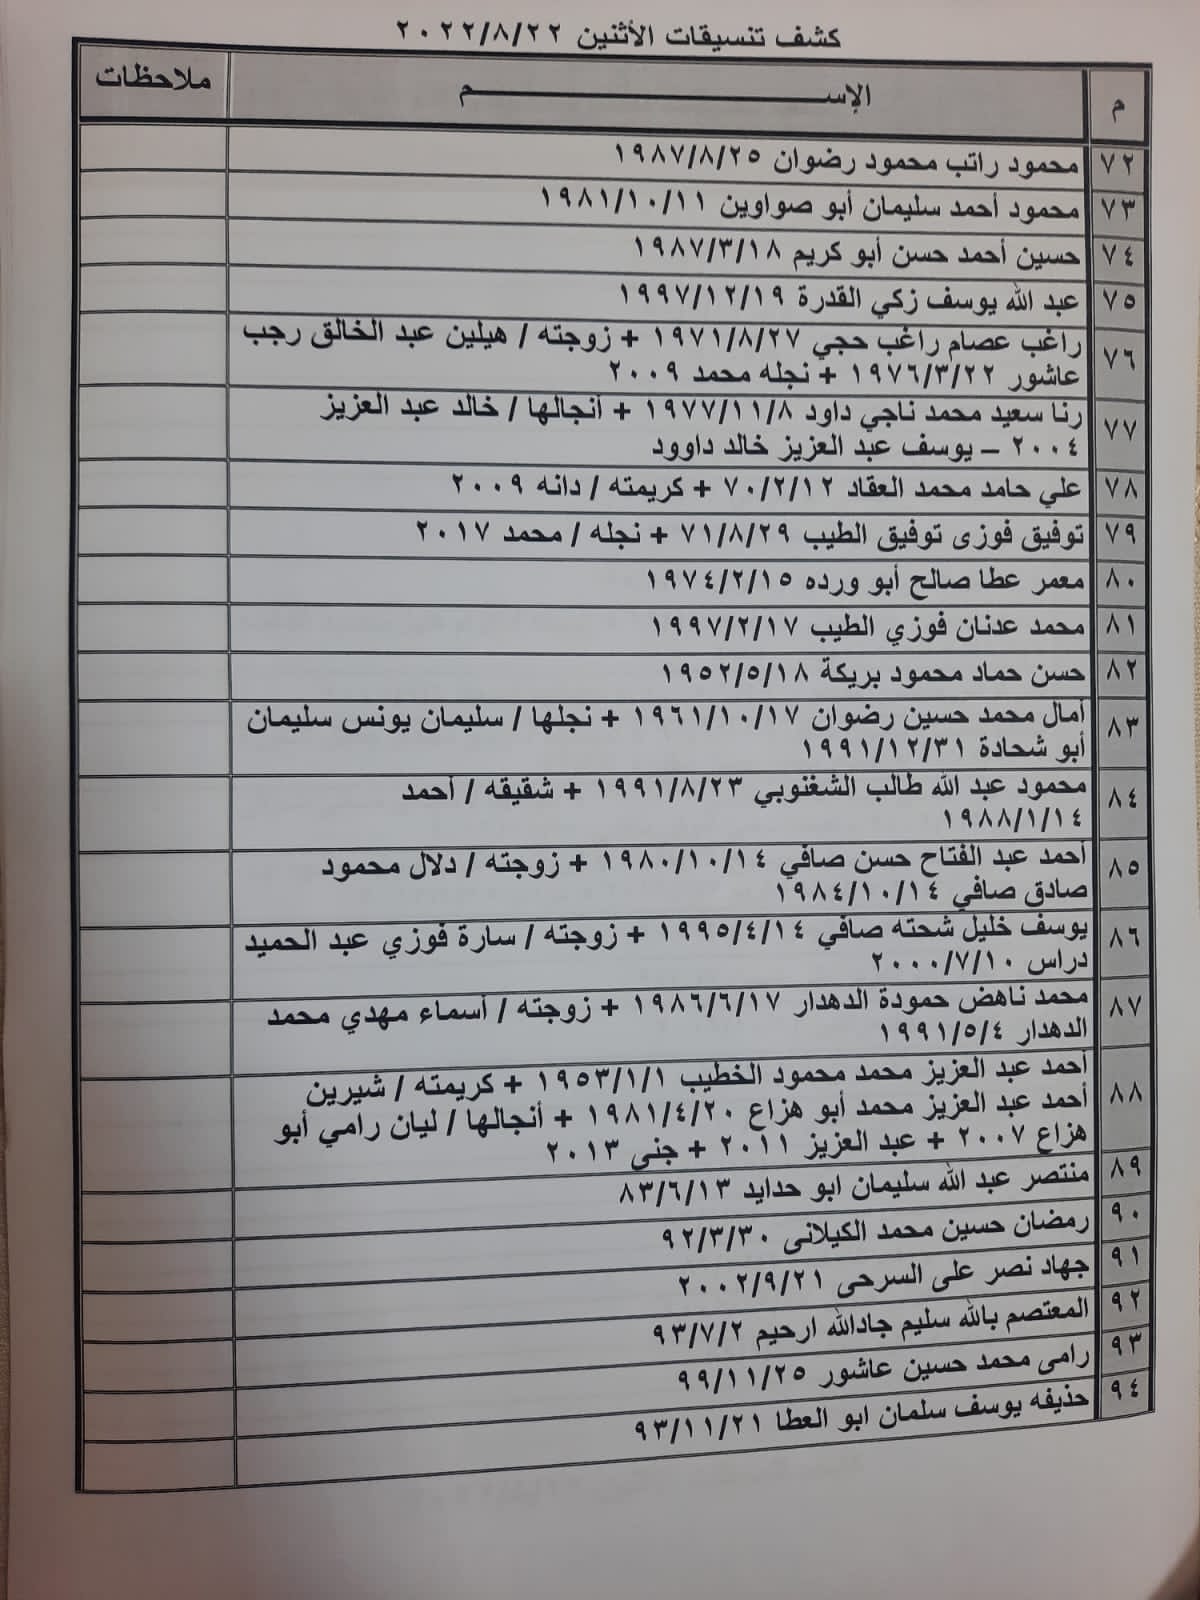 كشف تنسيقات الأثنين ٢٠٢٢/٨/٢٢
م الإســــم ملاحظات
٧٢ محمود راتب محمود رضوان ١٩٨٧/٨/٢٥
٧٣ محمود أحمد سليمان أبو صواوين ١٩٨١/١٠/١١
٧٤ حسين أحمد حسن أبو كريم ١٩٨٧/٣/١٨
٧٥ عبد الله يوسف زكي القدرة ١٩٩٧/١٢/١٩
٧٦ راغب عصام راغب حجي ١٩٧١/٨/٢٧ + زوجته / هيلين عبد الخالق رجب
عاشور ١٩٧٦/٣/٢٢ + نجله محمد ٢٠٠٩
٧٧ رنا سعيد محمد ناجي داود ١٩٧٧/١١/٨ + أنجالها / خالد عبد العزيز
٢٠٠٤ – يوسف عبد العزيز خالد داوود
٧٨ علي حامد محمد العقاد ٧٠/٢/١٢ + كريمته / دانه ٢٠٠٩
٧٩ توفيق فوزى توفيق الطيب ٧١/٨/٢٩ + نجله / محمد ٢٠١٧
٨٠ معمر عطا صالح أبو ورده ١٩٧٤/٢/١٥
٨١ محمد عدنان فوزي الطيب ١٩٩٧/٢/١٧
٨٢ حسن حماد محمود بريكة ١٩٥٢/٥/١٨
٨٣ أمال محمد حسين رضوان ١٩٦١/١٠/١٧ + نجلها / سليمان يونس سليمان
أبو شحادة ١٩٩١/١٢/٣١
٨٤ محمود عبد الله طالب الشغنوبي ١٩٩١/٨/٢٣ + شقيقه / أحمد
١٩٨٨/١/١٤
٨٥ أحمد عبد الفتاح حسن صافي ١٩٨٠/١٠/١٤ + زوجته / دلال محمود
صادق صافي ١٩٨٤/١٠/١٤
٨٦ يوسف خليل شحته صافي ١٩٩٥/٤/١٤ + زوجته / سارة فوزي عبد الحميد
دراس ٢٠٠٠/٧/١٠
٨٧ محمد ناهض حمودة الدهدار ١٩٨٦/٦/١٧ + زوجته / أسماء مهدي محمد
الدهدار ١٩٩١/٥/٤
٨٨ أحمد عبد العزيز محمد محمود الخطيب ١٩٥٣/١/١ + كريمته / شيرين
أحمد عبد العزيز محمد أبو هزاع ١٩٨١/٤/٢٠ + أنجالها / ليان رامي أبو
هزاع ٢٠٠٧ + عبد العزيز ٢٠١١ + جنى ٢٠١٣
٨٩ منتصر عبد الله سليمان ابو حدايد ٨٣/٦/١٣
٩٠ رمضان حسين محمد الكيلانى ٩٢/٣/٣٠
٩١ جهاد نصر على السرحى ٢٠٠٢/٩/٢١
٩٢ المعتصم بالله سليم جادالله ارحيم ٩٣/٧/٢
٩٣ رامى محمد حسين عاشور ٩٩/١١/٢٥
٩٤ حذيفه يوسف سلمان ابو العطا ٩٣/١١/٢١